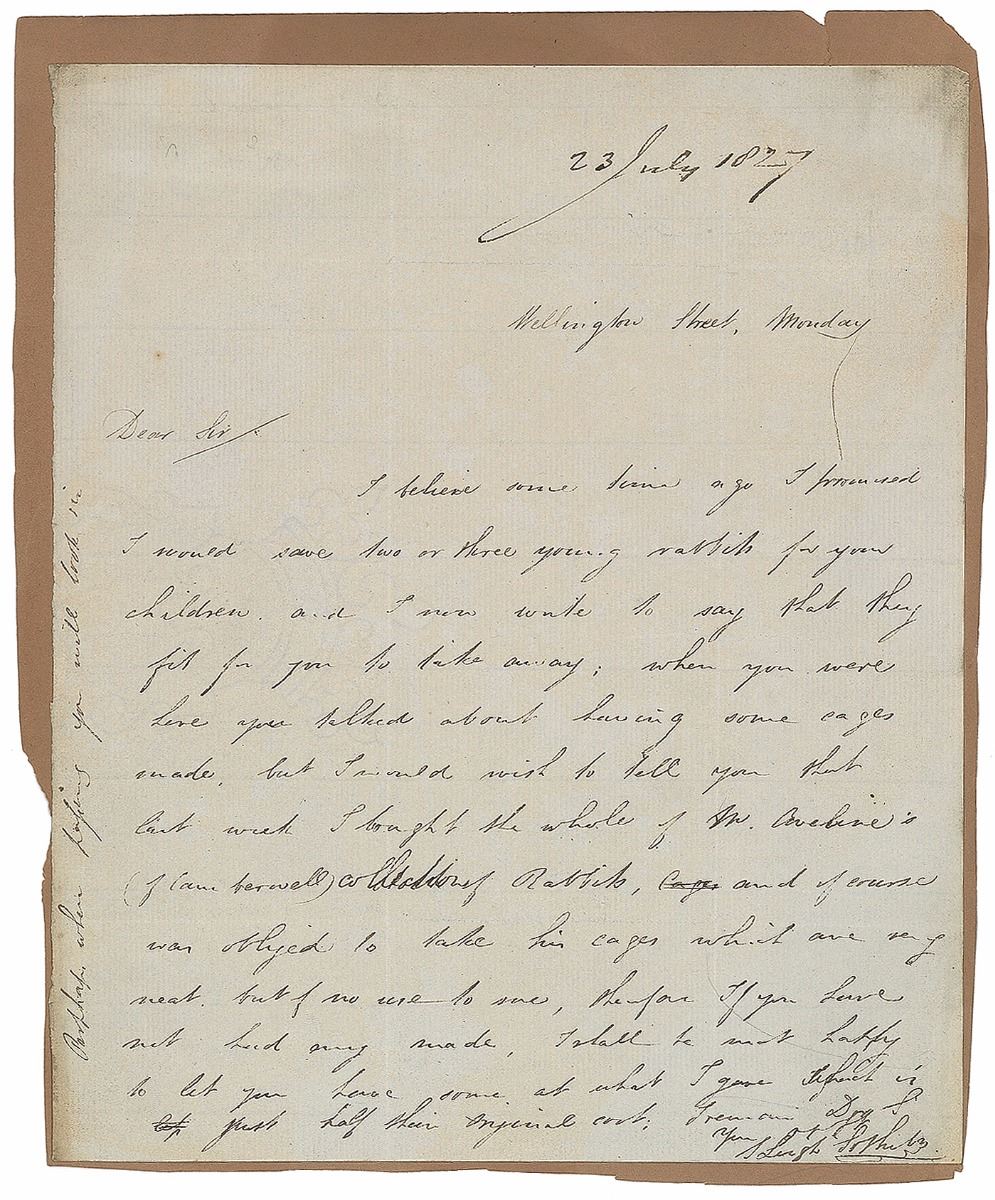 23 July 1827
Wellington Street, Monday
Dear Sir
I believe some time ago I promised
I would save two or three young rabbits for your
children. and I now write to say that they
fit for you to take away; when you were
here you talked about having some cages
made, but I would wish to tell you that
last week I bought the whole of Mr. Aveline's
(of Camberwell) collection of Rabbits, cages and of course
was obliged to take his cages which are very
neat. but of no use to me, therefore If you have
not had any made, I shall be most happy
to let you have some at what I gave which is
just half their original cost; I remain Dr Sir
Yours
S Leigh Sotheby
Perhaps when passing you will look in